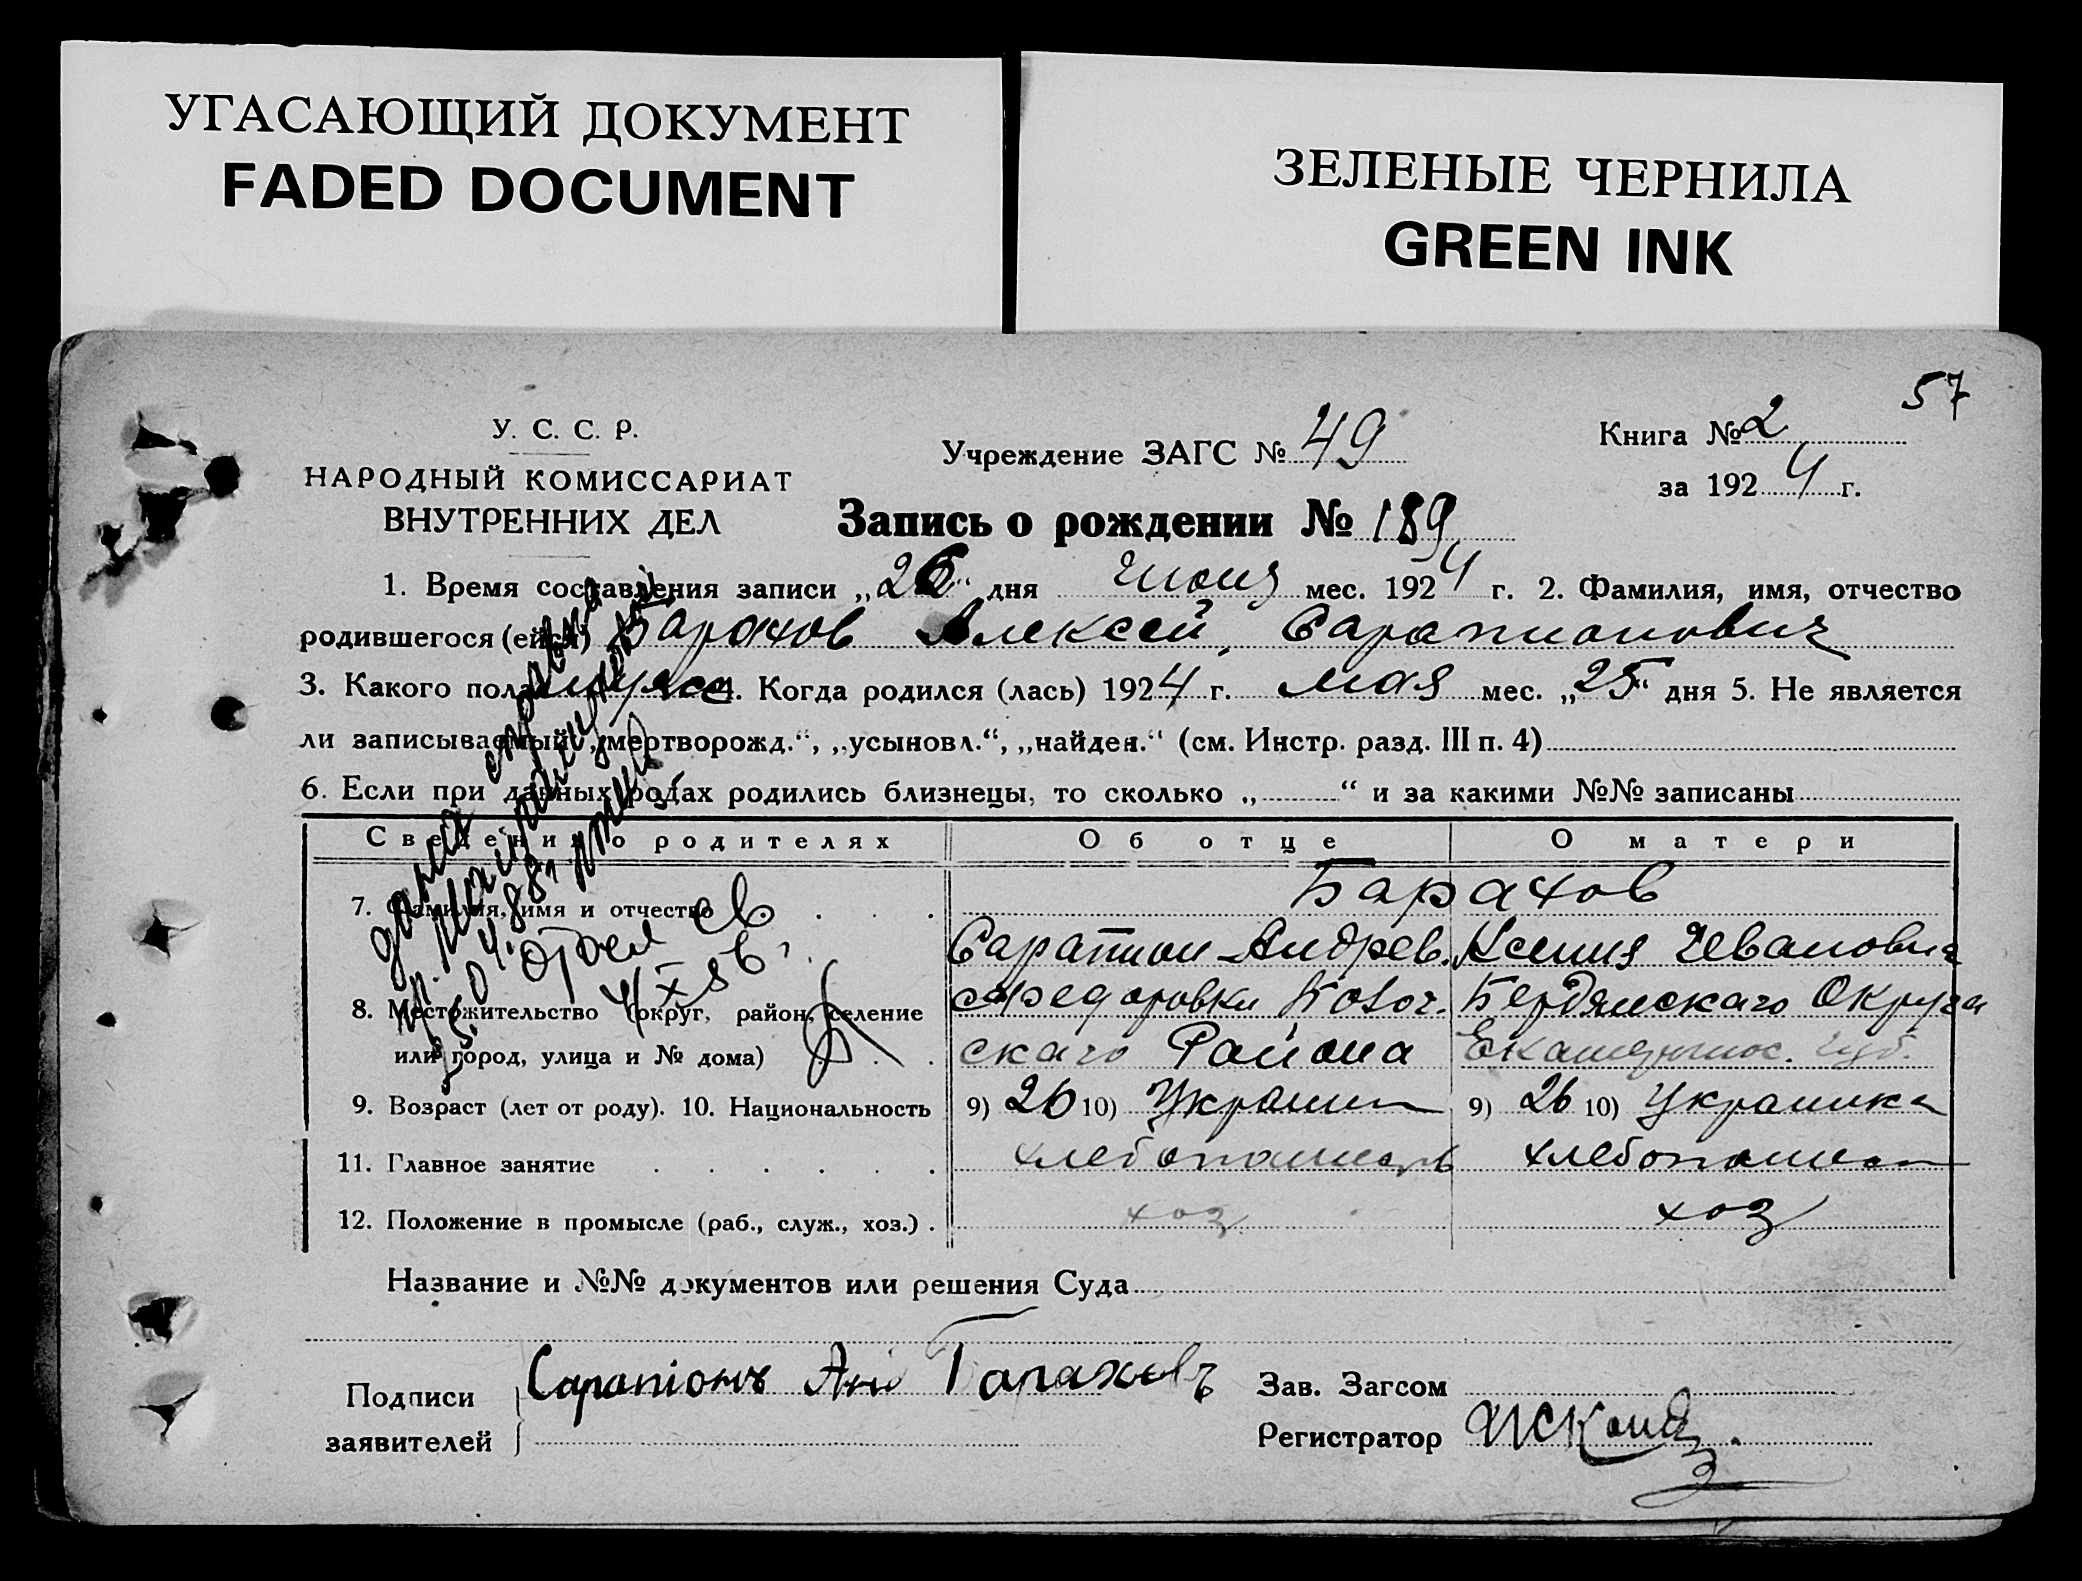 УГАСАЮЩИЙ ДОКУМЕНТ
FADED DOCUMENT
ЗЕЛЕНЫЕ ЧЕРНИЛА
GREEN INK
57
У. С. С. Р.
НАРОДНЫЙ КОМИССАРИАТ
ВНУТРЕННИХ ДЕЛ
Учреждение ЗАГС № 49
Книга № 2
за 1924 г.
Запись о рождении № 189
1. Время составления записи „26“ дня Июня мес. 1924 г. 2. Фамилия, имя, отчество
родившегося (ейся) Барахов Алексей Сарапионович
3. Какого пола муж 4. Когда родился (лась) 1924 г. мая мес. „25“ дня 5. Не является
ли записываемый „мертворожд.“, „усыновл.“, „найден.“ (см. Инстр. разд. III п. 4)
6. Если при данных родах родились близнецы, то сколько „ “ и за какими №№ записаны
Сведения о родителях Об отце О матери
7. Фамилия, имя и отчество Барахов
Сарапион Андрев. Ксения Ивановна
8. Местожительство (округ, район, селение Федоровки Бердянскаго Округа
или город, улица и № дома) скаго Района
9. Возраст (лет от роду). 10. Национальность 9) 26 10) Украин 9) 26 10) Украинка
11. Главное занятие хлебопашець хлебопаш
12. Положение в промысле (раб., служ., хоз.) хоз хоз
Название и №№ документов или решения Суда
Подписи Сарапіонъ Бараховъ
заявителей
Зав. Загсом
Регистратор